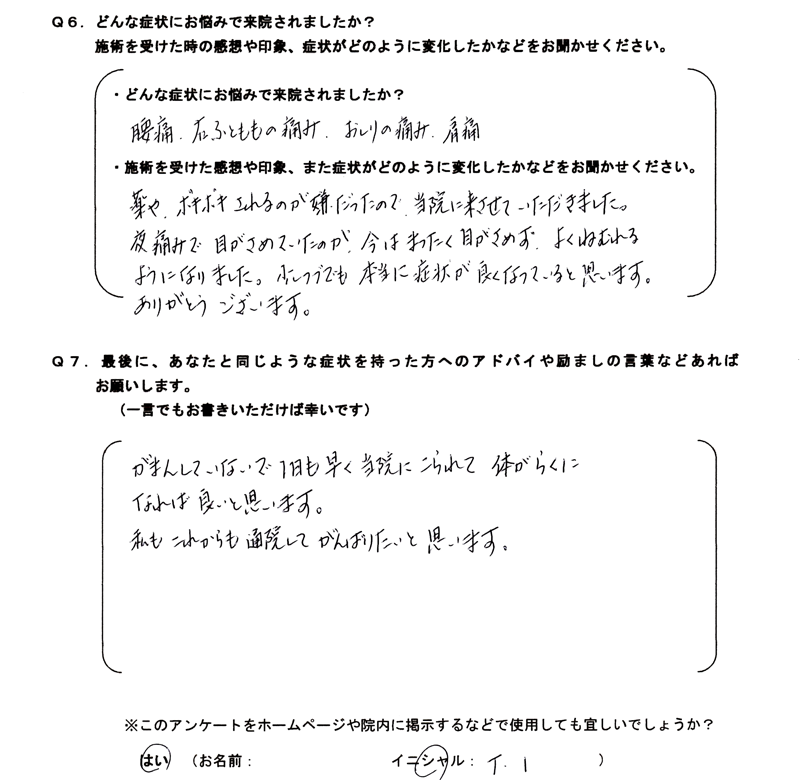 Q6. どんな症状にお悩みで来院されましたか？
施術を受けた時の感想や印象、症状がどのように変化したかなどをお聞かせください。
・どんな症状にお悩みで来院されましたか？
腰痛、右ふとももの痛み、おしりの痛み、肩痛
・施術を受けた感想や印象、また症状がどのように変化したかなどをお聞かせください。
薬や、ボキボキされるのが嫌だったので、当院に来させていただきました。
夜痛みで目がさめていたのが、今はまったく目がさめず、よくねむれる
ようになりました。少しづつでも本当に症状が良くなっていると思います。
ありがとうございます。
Q7. 最後に、あなたと同じような症状を持った方へのアドバイや励ましの言葉などあれば
お願いします。
（一言でもお書きいただけば幸いです）
がまんしていないで1日も早く当院にこられて体がらくに
なれば良いと思います。
私もこれからも通院してがんばりたいと思います。
※このアンケートをホームページや院内に掲示するなどで使用しても宜しいでしょうか？
はい （お名前： イニシャル： T. I ）